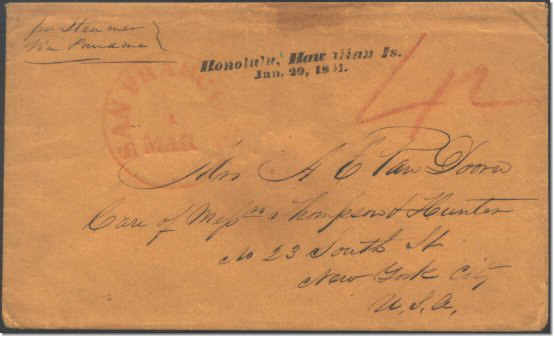 pr Steamer
Via Panama
Honolulu, Hawaiian Is.
Jan. 29, 1851.
SAN FRANC
1
MAR
42
Mrs A E Van Doorn
Care of Messrs Thompson & Hunter
No 23 South St
New York City
U.S.A.